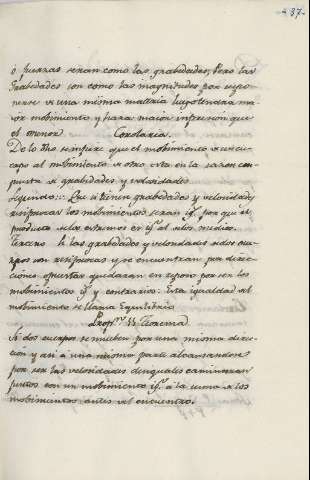 37
ó fuerzas seran como las grabedades, Pero las
grabedades son como las magnitudes por supo-
nerse de una misma materia luego tendra ma-
ior mobimiento y hara maior impresion que
el menor. Corolario.
De lo dho se infiere que el mobimiento de un cu-
erpo al mobimiento de otro esta en la razon com-
puesta de grabedades y velosidades
Segundo: Que si tienen grabedades y velosidades
resiprocas los mobimientos seran ig.s por que el
producto de los estremos es ig.l al de los medios.
Tersero Si las grabedades y velosidades de los cuer-
pos son resiprocas y se encuentran por direc-
ciones opuestas quedaran en reposo por ser los
mobimientos ig.s y contrarios: Esta igualdad de
mobimiento se llama Equilibrio
Prop.on Teorema
Si dos cuerpos se mueben por una misma direc-
cion y asi a una misma parte alcansandose
por ser las velosidades desiguales caminaran
juntos con un mobimiento ig.l á la suma de los
mobimientos antes del encuentro.